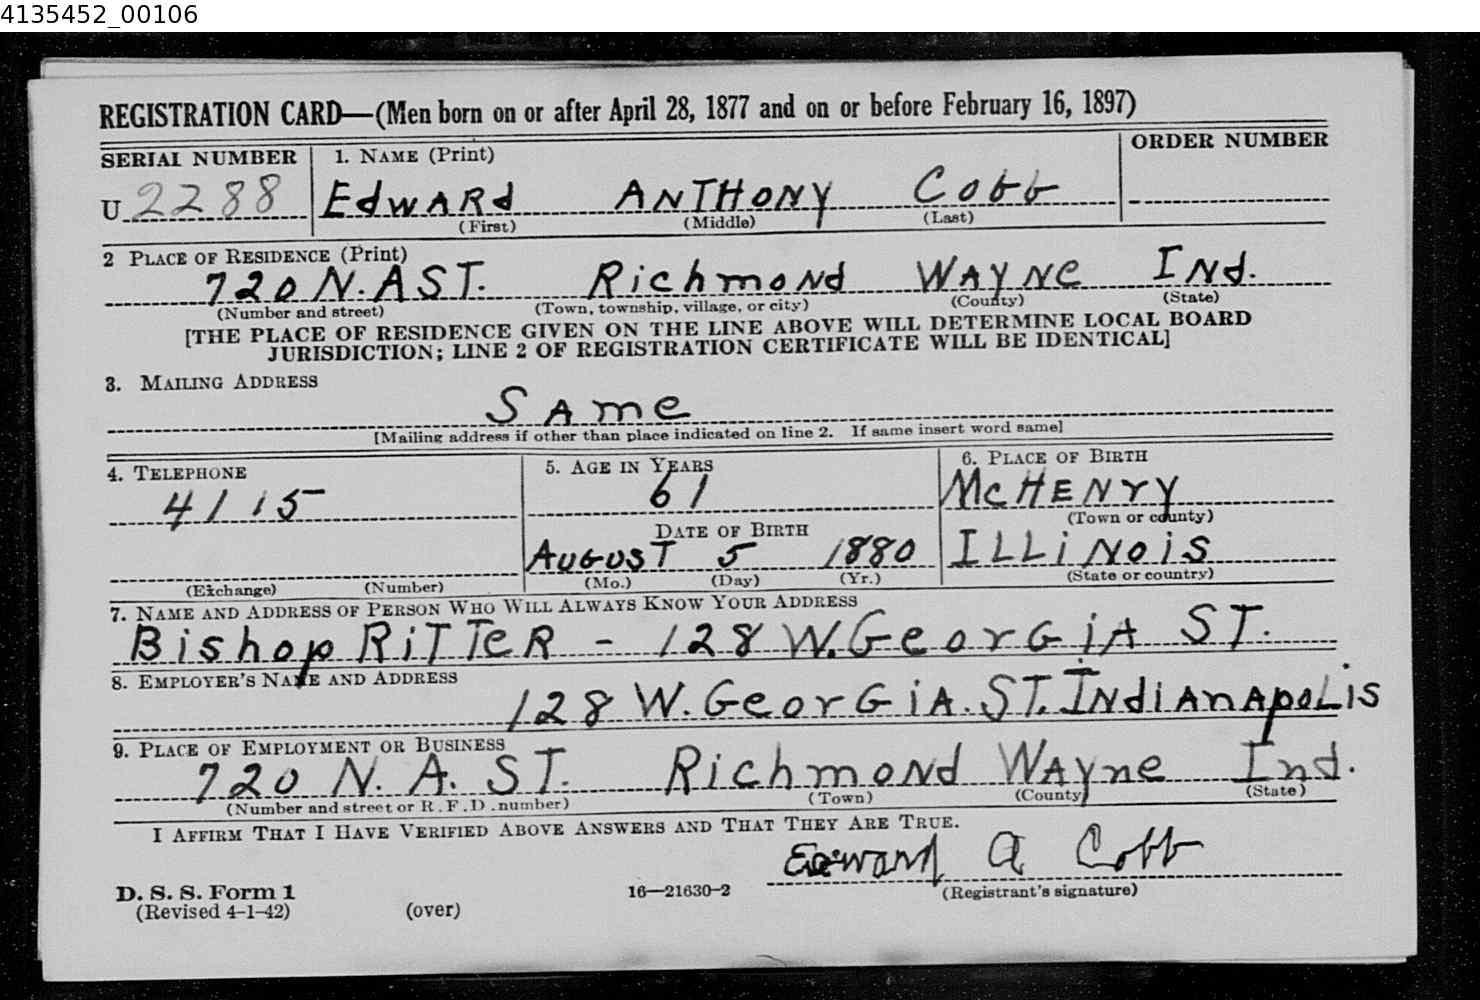 4135452_00106
REGISTRATION CARD—(Men born on or after April 28, 1877 and on or before February 16, 1897)
SERIAL NUMBER 1. NAME (Print) ORDER NUMBER
U 2288 EdWARd ANTHONY Cobb
(First) (Middle) (Last)
2 PLACE OF RESIDENCE (Print)
720 N. A ST. Richmond WAYNe INd.
(Number and street) (Town, township, village, or city) (County) (State)
[THE PLACE OF RESIDENCE GIVEN ON THE LINE ABOVE WILL DETERMINE LOCAL BOARD
JURISDICTION; LINE 2 OF REGISTRATION CERTIFICATE WILL BE IDENTICAL]
3. MAILING ADDRESS
SAme
[Mailing address if other than place indicated on line 2. If same insert word same]
4. TELEPHONE 5. AGE IN YEARS 6. PLACE OF BIRTH
4115 61 McHENRY
(Town or county)
DATE OF BIRTH
AUGUST 5 1880 ILLiNoiS
(Exchange) (Number) (Mo.) (Day) (Yr.) (State or country)
7. NAME AND ADDRESS OF PERSON WHO WILL ALWAYS KNOW YOUR ADDRESS
Bishop RiTTeR - 128 W. GeorGiA ST.
8. EMPLOYER'S NAME AND ADDRESS
128 W. GeorGiA. ST. INdiANApoLis
9. PLACE OF EMPLOYMENT OR BUSINESS
720 N. A. ST. Richmond WAYne Ind.
(Number and street or R. F. D. number) (Town) (County) (State)
I AFFIRM THAT I HAVE VERIFIED ABOVE ANSWERS AND THAT THEY ARE TRUE.
Edward A Cobb
D. S. S. Form 1 16—21630-2 (Registrant's signature)
(Revised 4-1-42) (over)